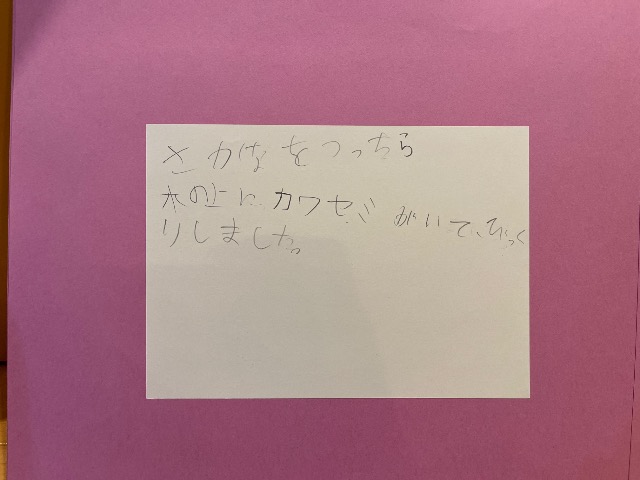 さかなをつっちら
木の上にカワセミがいて、びっく
りしました。